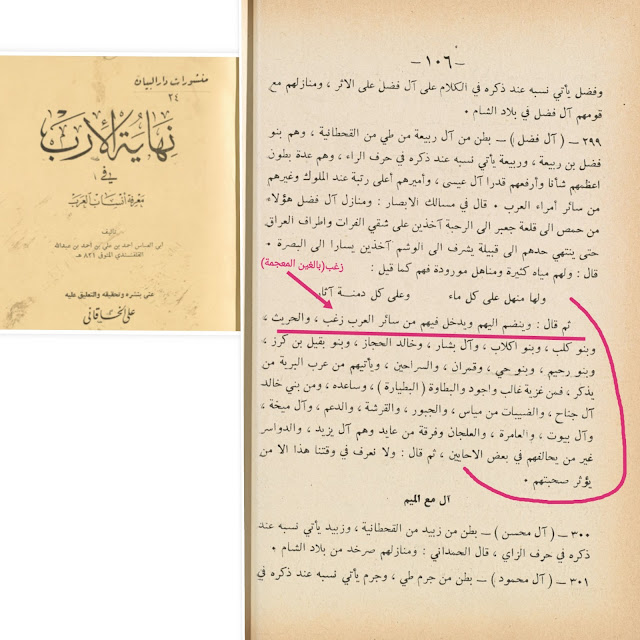 منشورات دار البيان
٢٤
نهاية الأرب
في
معرفة أنساب العرب
تأليف
ابي العباس احمد بن علي بن احمد بن عبدالله
القلقشندي المتوفى ٨٢١ هـ
عني بنشره وتحقيقه والتعليق عليه
علي الخاقاني
-١٠٦-
وفضل يأتي نسبه عند ذكره في الكلام على آل فضل على الاثر ، ومنازلهم مع
قومهم آل فضل في بلاد الشام ٠
٢٩٩ – ( آل فضل ) – بطن من آل ربيعة من طي من القحطانية ، وهم بنو
فضل بن ربيعة ، وربيعة يأتي نسبه عند ذكره في حرف الراء ، وهم عدة بطون
اعظمهم شأنا وأرفعهم قدرا آل عيسى ، وأميرهم أعلى رتبة عند الملوك وغيرهم
من سائر أمراء العرب ٠ قال في مسالك الابصار : ومنازل آل فضل هؤلاء
من حمص الى قلعة جعبر الى الرحبة آخذين على شقي الفرات واطراف العراق
حتى ينتهي حدهم الى قبيلة يشرف الى الوشم آخذين يسارا الى البصرة ٠
زغب(بالغين المعجمة)
قال : ولهم مياه كثيرة ومناهل مورودة فهم كما قيل :
ولها منهل على كل ماء وعلى كل دمنة آثار
ثم قال : وينضم اليهم ويدخل فيهم من سائر العرب زغب ، والحريث ،
وبنو كلب ، وبنو اكلاب ، وآل بشار ، وخالد الحجاز ، وبنو بقيل بن كرز ،
وبنو رحيم ، وبنو حي ، وقمران ، والسراحين ، ويأتيهم من عرب البرية من
يذكر ، فمن غزية غالب واجود والبطاوة ( البطيارة ) ، وساعده ، ومن بني خالد
آل جناح ، والضبيبات من مياس ، والجبور ، والقرشة ، والدعم ، وآل ميخة ،
وآل بيوت ، والعامرة ، والعلجان وفرقة من عايد وهم آل يزيد ، والدواسر
غير من يحالفهم في بعض الاحايين ، ثم قال : ولا نعرف في وقتنا هذا الا من
يؤثر صحبتهم ٠
آل مع الميم
٣٠٠ – ( آل محسن ) – بطن من زبيد من القحطانية ، وزبيد يأتي نسبه عند
ذكره في حرف الزاي ، قال الحمداني : ومنازلهم صرخد من بلاد الشام ٠
٣٠١ – ( آل محمود ) – بطن من جرم طي ، وجرم يأتي نسبه عند ذكره في